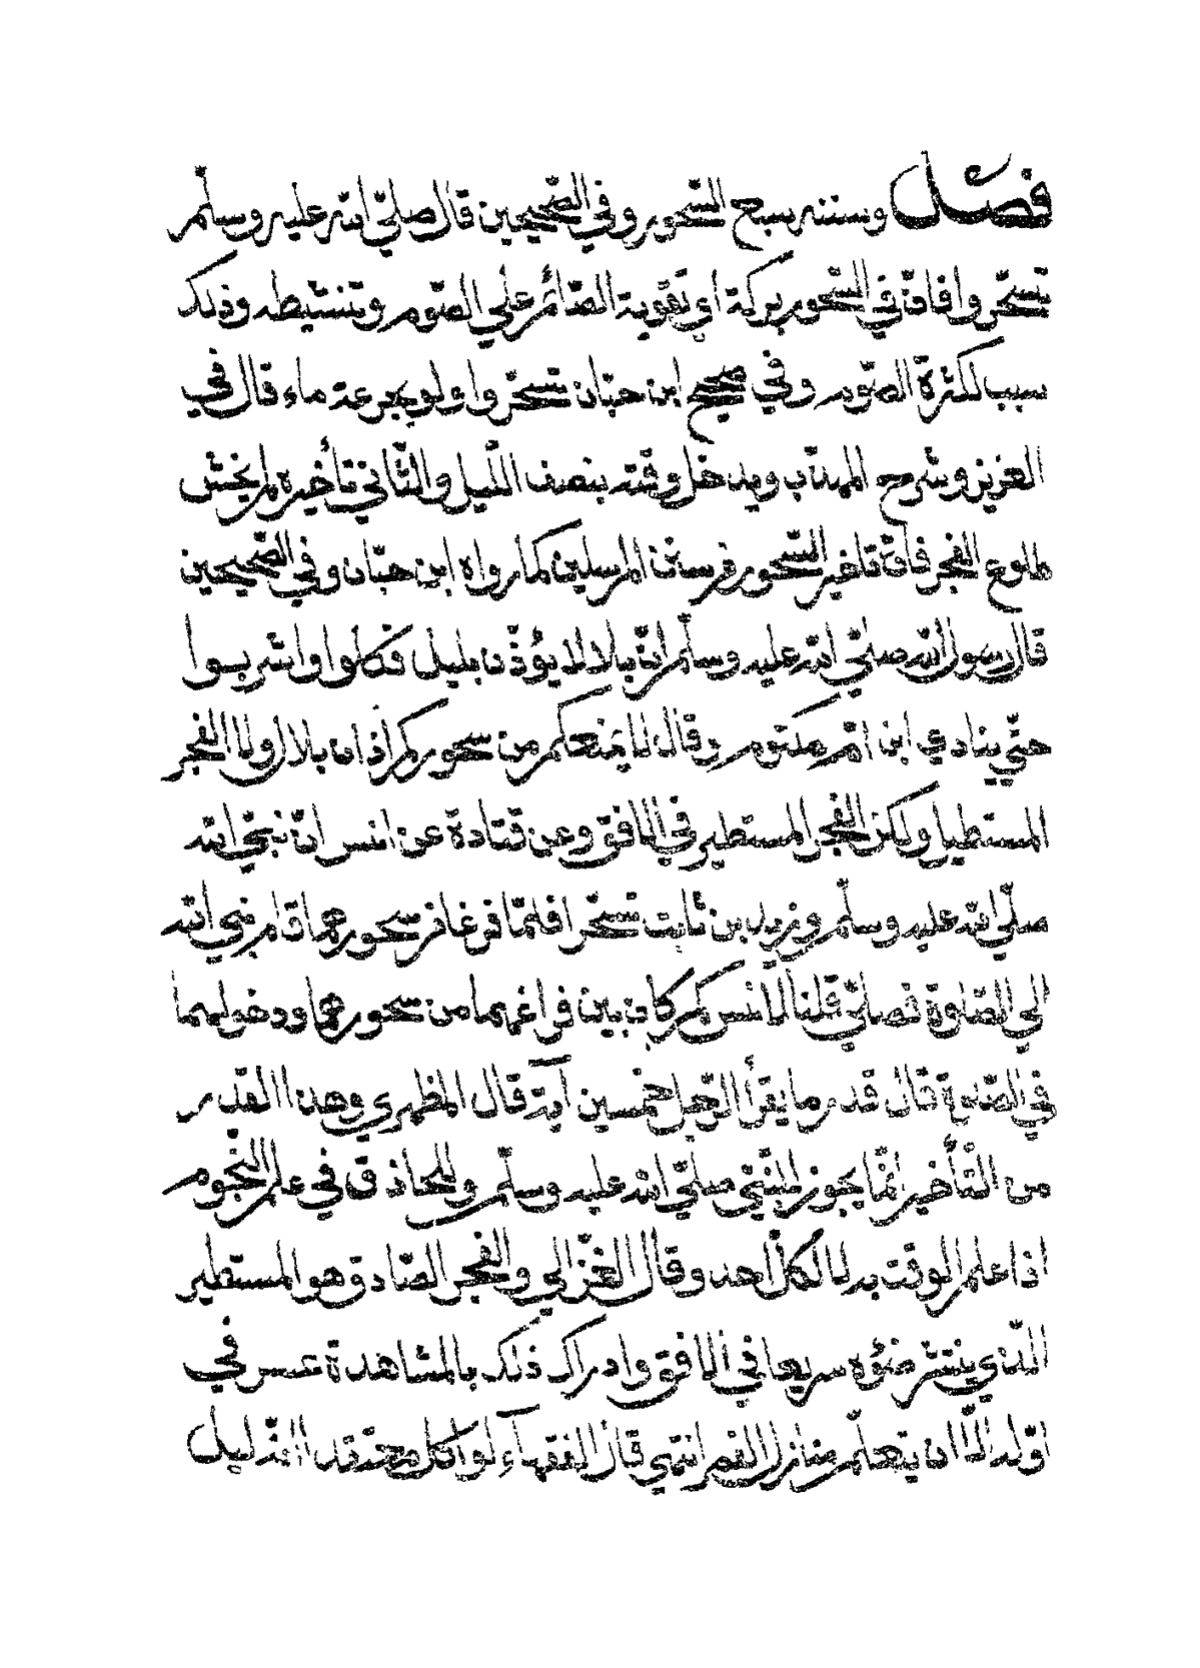 فصل وسننه سبع السّحور وفي الصّحيحين قال صلّي الله عليه وسلّم
تسحّروا فانّ في السّحور بركة اي تقوية الصّائم علي الصّوم وتنشيطه وذلك
سبب لكثرة الصّوم وفي صحيح ابن حبّان تسحّروا ولو بجرعة ماء قال في
العزيز وشرح المهذّب ويدخل وقته بنصف اللّيل والثّاني تأخيره لم يخش
طلوع الفجر فانّ تاخير السّحور من سنن المرسلين كما رواه ابن حبّان وفي الصّحيحين
قال رسول الله صلّي الله عليه وسلّم انّ بلالا يؤذّن بليل فكلوا واشربوا
حتّي ينادي ابن امّ مكتوم وقال لا يمنعكم من سحوركم اذان بلال ولا الفجر
المستطيل ولكن الفجر المستطير في الافق وعن قتادة عن انس انّ نبيّ الله
صلّي الله عليه وسلّم وزيد بن ثابت تسحّرا فلمّا فرغا من سحورهما قام نبي الله
الي الصّلوة فصلّي قلنا لانس كم كان بين فراغهما من سحورهما ودخولهما
في الصّلوة قال قدر ما يقرأ الرّجل خمسين آية قال المظهري وهذا القدر
من التّأخير انّما يجوز للنّبيّ صلّي الله عليه وسلّم وللحاذق في علم النّجوم
اذا علم الوقت به لا لكلّ احد وقال الغزّالي والفجر الصّادق هو المستطير
الّذي ينتشر ضوؤه سريعا في الافق وادراك ذلك بالمشاهدة عسر في
اوّله الّا ان يتعلّم منازل القمر انتهي قال الفقهآء لو اكل معتقدا اللّيل